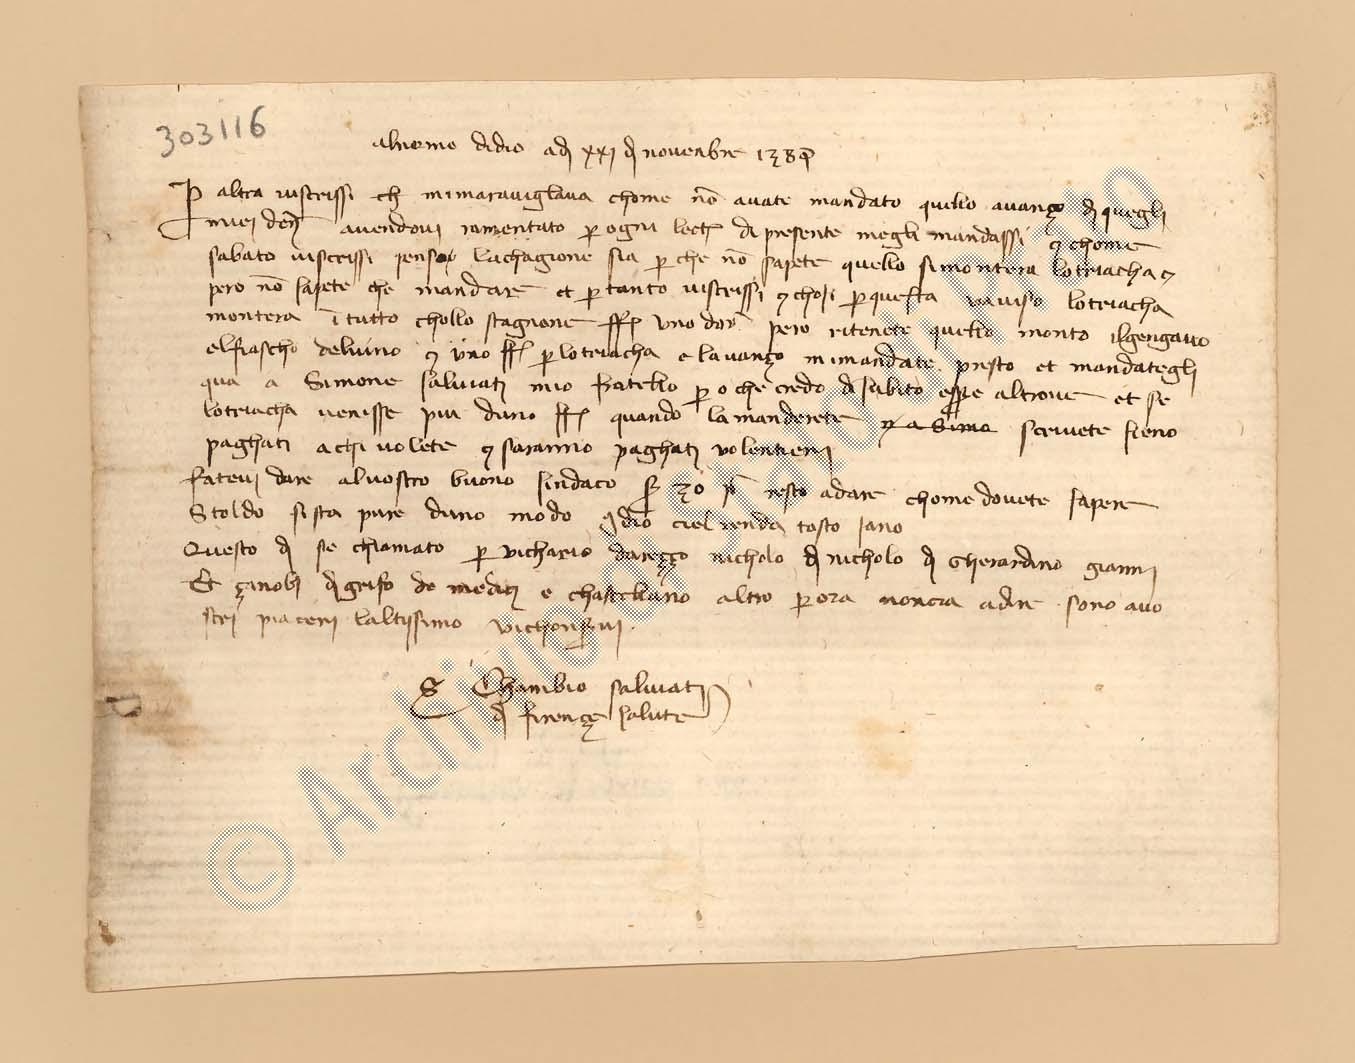 303116
al nome di dio adj xxj dj novenbre
P altra viscrissi ch mi maraviglava chome nō avate mandato quello avanzo dj quegli
miei denr avendovi ramentato p ogni lectr di presente megli mandassi chome
sabato viscrissi penso lachagione sia p che nō sapete quello si montera lotriacha
pero nō sapete che mandare et p tanto viscrissi choſi p questa vaviso lotriacha
montera ī tutto chollo stagnone uno dor pero ritenete quello monto ilgengavo
elfiascho delvino uno p lotriacha e lavanzo mimandate presto et mandategli
qua a Simone salviatj mio fratello p o che credo dj subito altrove et se
lotriacha venisse piu duno quando lamanderete a Simo scrivete sieno
paghatj achi volete saranno paghatj volentierj
fatevi dare alvostro buono sindaco 30 resto adare chome dovete sapere
Stoldo sista pure duno modo dio ciel renda tosto sano
Questo dj se chiamato p vichario darezzo nicholo dj nicholo dj Gherardino giannj
Et zanobj dj de medicj e chastellano altro p ora noncia adire . sono a vo
strj piacerj laltissimo vi
Chambio salviatj
dj firenze salute
© Archivio di Stato di Prato